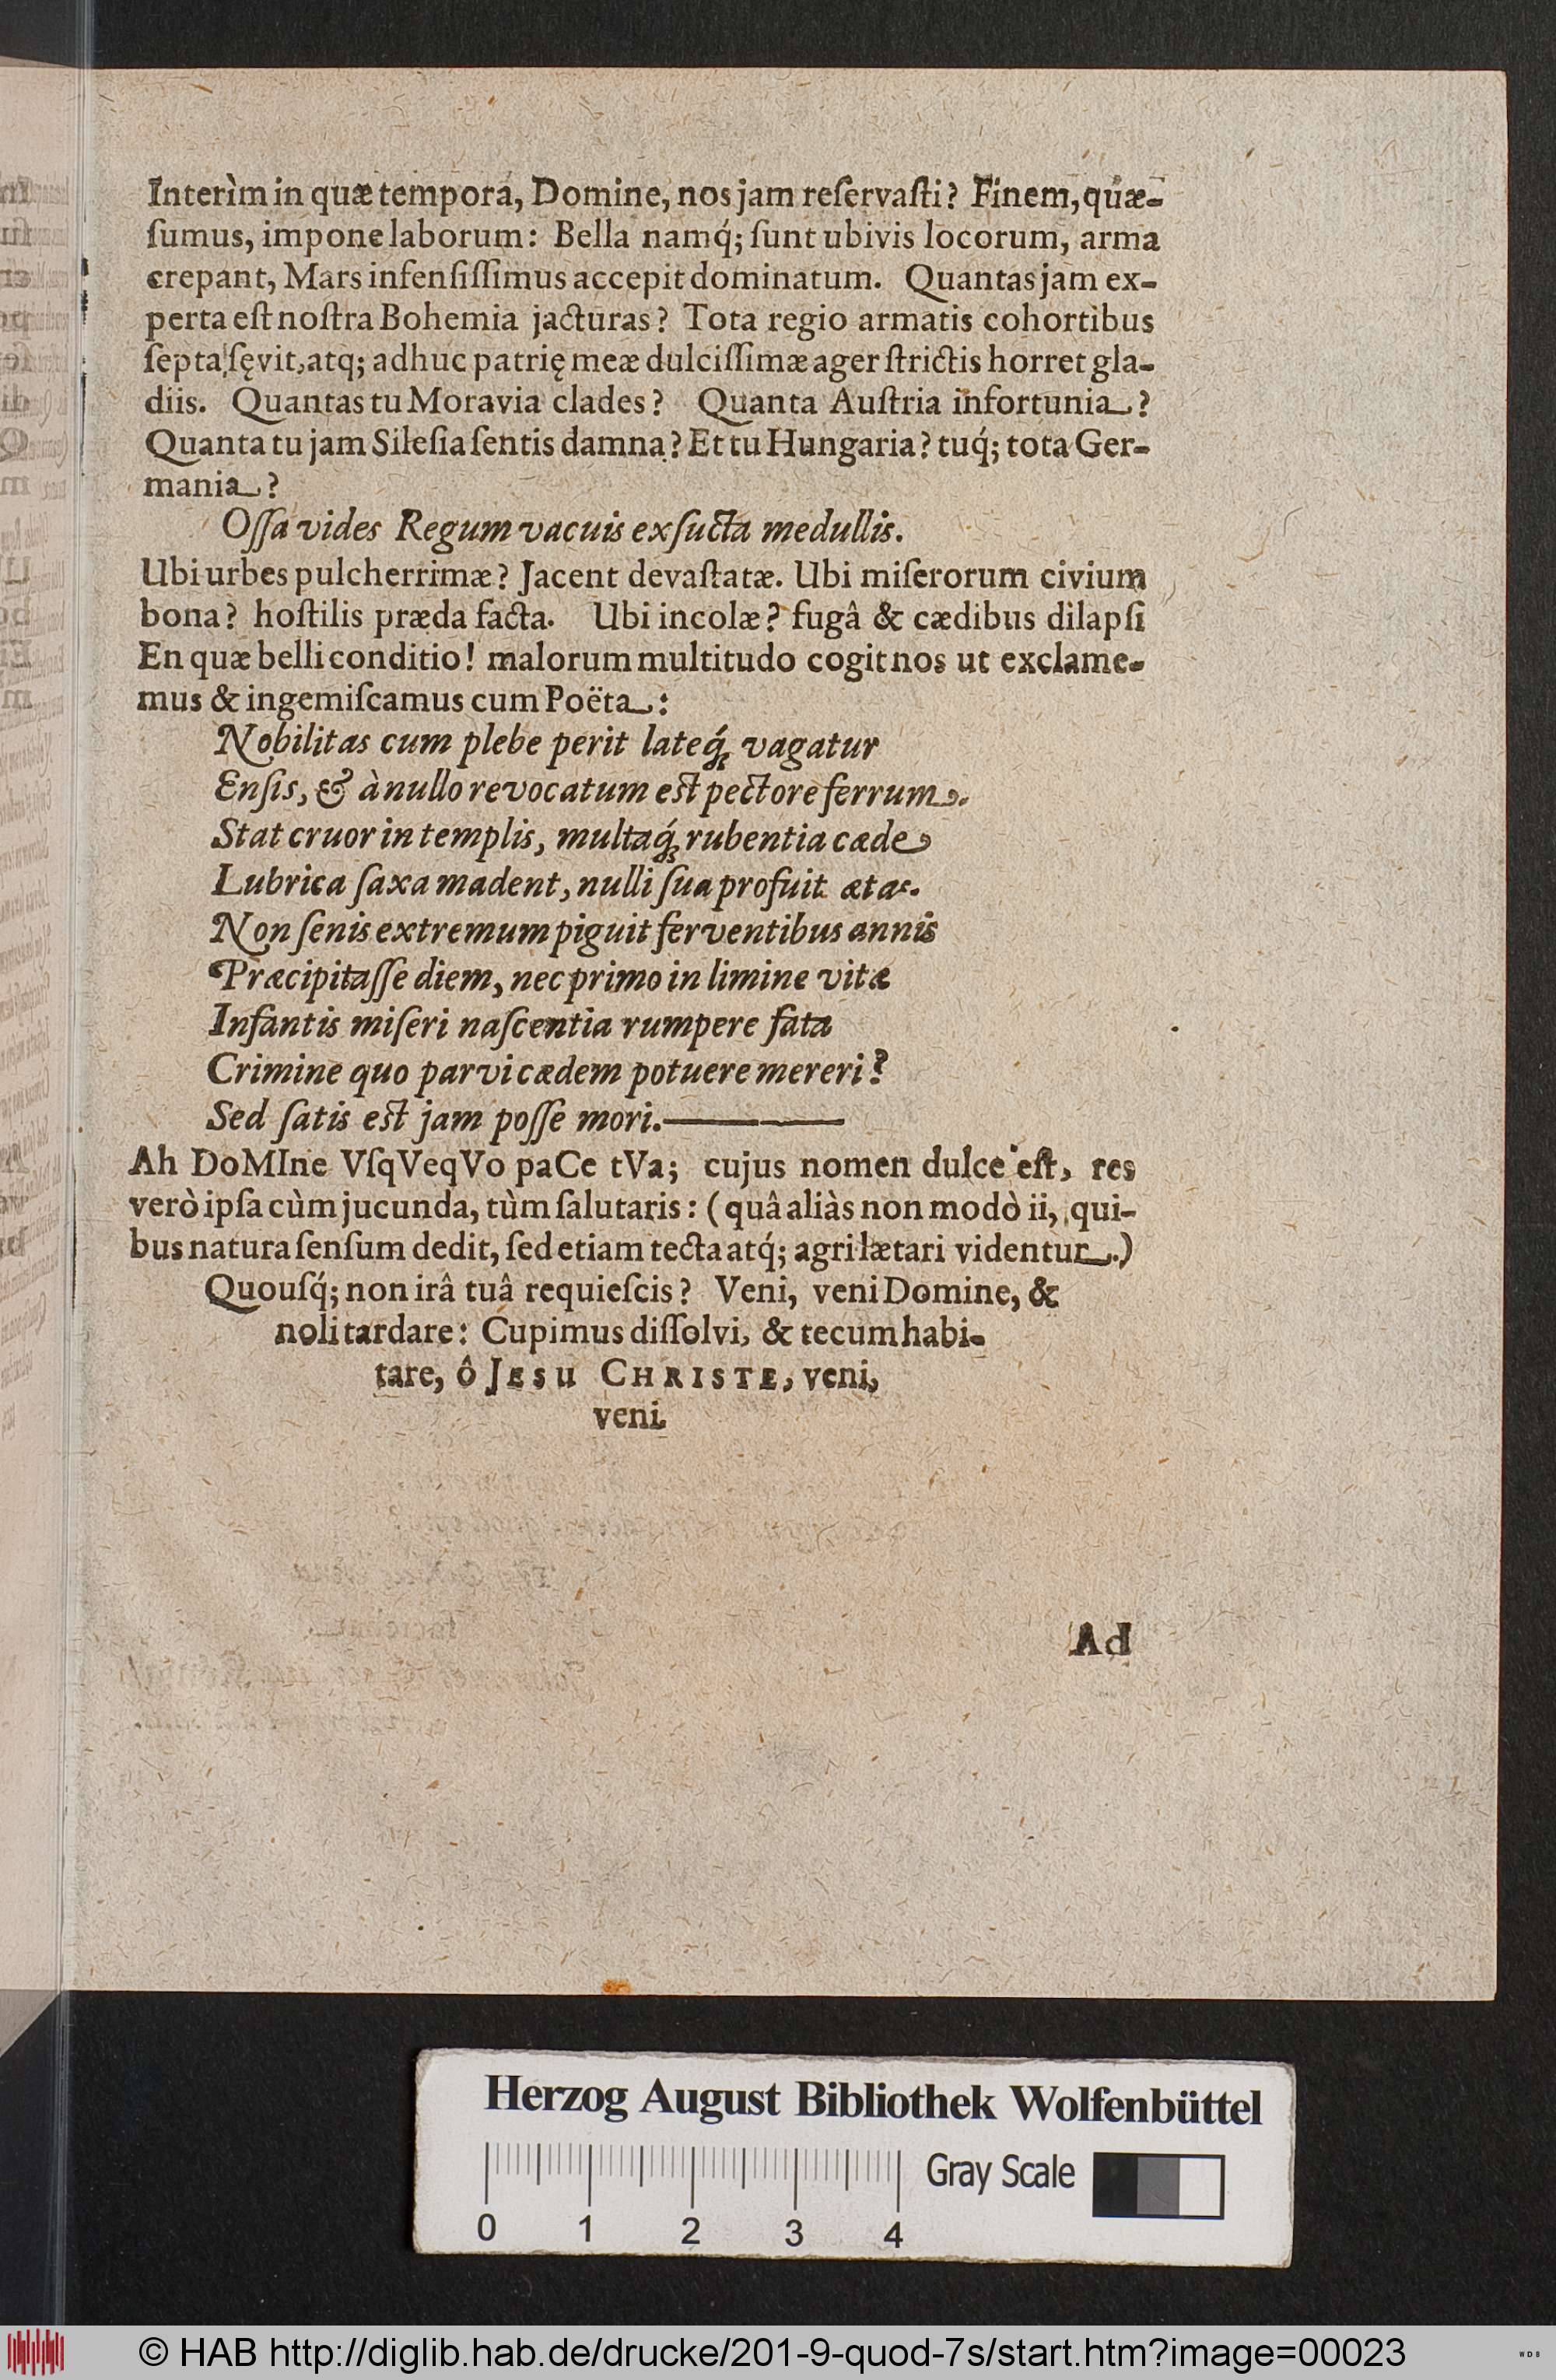 Interìm in quæ tempora, Domine, nos jam reſervaſti? Finem, quæ-
ſumus, impone laborum: Bella namq́; ſunt ubivis locorum, arma
crepant, Mars infenſiſſimus accepit dominatum. Quantas jam ex-
perta eſt noſtra Bohemia jacturas? Tota regio armatis cohortibus
ſepta ſęvit, atq; adhuc patrię meæ dulciſſimæ ager ſtrictis horret gla-
diis. Quantas tu Moravia clades? Quanta Auſtria infortunia?
Quanta tu jam Sileſia ſentis damna? Et tu Hungaria? tuq́; tota Ger-
mania?
Oſſa vides Regum vacuis exſucta medullis.
Ubi urbes pulcherrimæ? Jacent devaſtatæ. Ubi miſerorum civium
bona? hoſtilis præda facta. Ubi incolæ? fugâ & cædibus dilapſi
En quæ belli conditio! malorum multitudo cogit nos ut exclame-
mus & ingemiſcamus cum Poëta:
Nobilitas cum plebe perit lateq́; vagatur
Enſis, & à nullo revocatum eſt pectore ferrum.
Stat cruor in templis, multaq́; rubentia cæde
Lubrica ſaxa madent, nulli ſua profuit ætas.
Non ſenis extremum piguit ferventibus annis
Præcipitaſſe diem, nec primo in limine vitæ
Infantis miſeri naſcentia rumpere fata
Crimine quo parvi cædem potuere mereri?
Sed ſatis eſt jam poſſe mori.
Ah DoMIne VſqVeqVo paCe tVa; cujus nomen dulce eſt, res
verò ipſa cùm jucunda, tùm ſalutaris: (quâ aliàs non modò ii, qui-
bus natura ſenſum dedit, ſed etiam tecta atq́; agri lætari videntur.)
Quouſq́; non irâ tuâ requieſcis? Veni, veni Domine, &
noli tardare: Cupimus diſſolvi, & tecum habi-
tare, ô JESU CHRISTE, veni,
veni.
Ad
Herzog August Bibliothek Wolfenbüttel
Gray Scale
0 1 2 3 4
© HAB http://diglib.hab.de/drucke/201-9-quod-7s/start.htm?image=00023
WDB